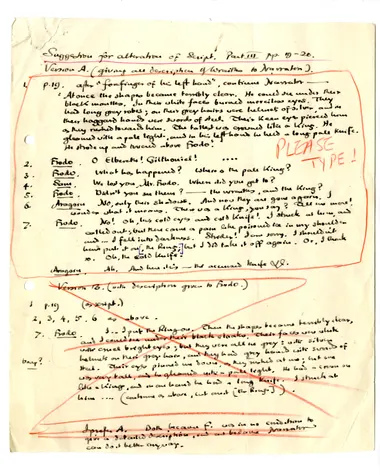 Suggestion for alteration of Script, Part III pp 19-20.
Version A. (giving all description of Wraiths to Narrator).
1. p.19. after "forefinger of his left hand" continue Narrator
"At once the shapes became terribly clear. He could see under their
black mantles. In their white faces burned merciless eyes. They
had long grey robes; on their grey hairs were helmets of silver, and in
their haggard hands were swords of steel. Their keen eyes pierced him
as they rushed towards him. The tallest was crowned like a king. He
gleamed with a pale light, and in his left hand he held a long pale knife.
He strode up and towered above Frodo.
PLEASE
TYPE!
2. Frodo. O Elbereth! Gilthoniel! ....
3. Frodo. What has happened? Where is the pale king?
4. Sam. We lost you, Mr. Frodo. Where did you get to?
5. Frodo. Didn't you see them — the wraiths, and the King?
6. Aragorn. No, only their shadows. And now they are gone again, I
wonder what it means. There was a king you say? Tell me more!
7. Frodo. No! Oh, his cold eyes and cold knife! I struck at him, and
called out; but there came a pain like poisoned ice in my shoulder
and — I fell into darkness. Strider! I am sorry. I shouldn't
have put it on, the Ring, but I did take it off again. Or, I think
so. Oh, the cold knife!
Aragorn. Ah. And here it is — the accursed knife
Version B. (with description given to Frodo.)
1 p.19 (as script.)
2, 3, 4, 5, 6 as above.
7. Frodo. I... I put the Ring on. Then the shapes became terribly clear,
and I could see under their black cloaks. Their faces were white
with cruel bright eyes; but they were all so grey; with silver
helmets on their grey hair, and they had grey hands with swords of
steel. Their eyes pinned me down
was very tall, and he gleamed with a pale light. He had a crown on
like a king, and in one hand he had a long knife. I struck at
him .... (continue as above, but omit [the King])
I prefer A. Both because F. was in no condition to
give a detailed description, and because Narrator
can do it better anyway.